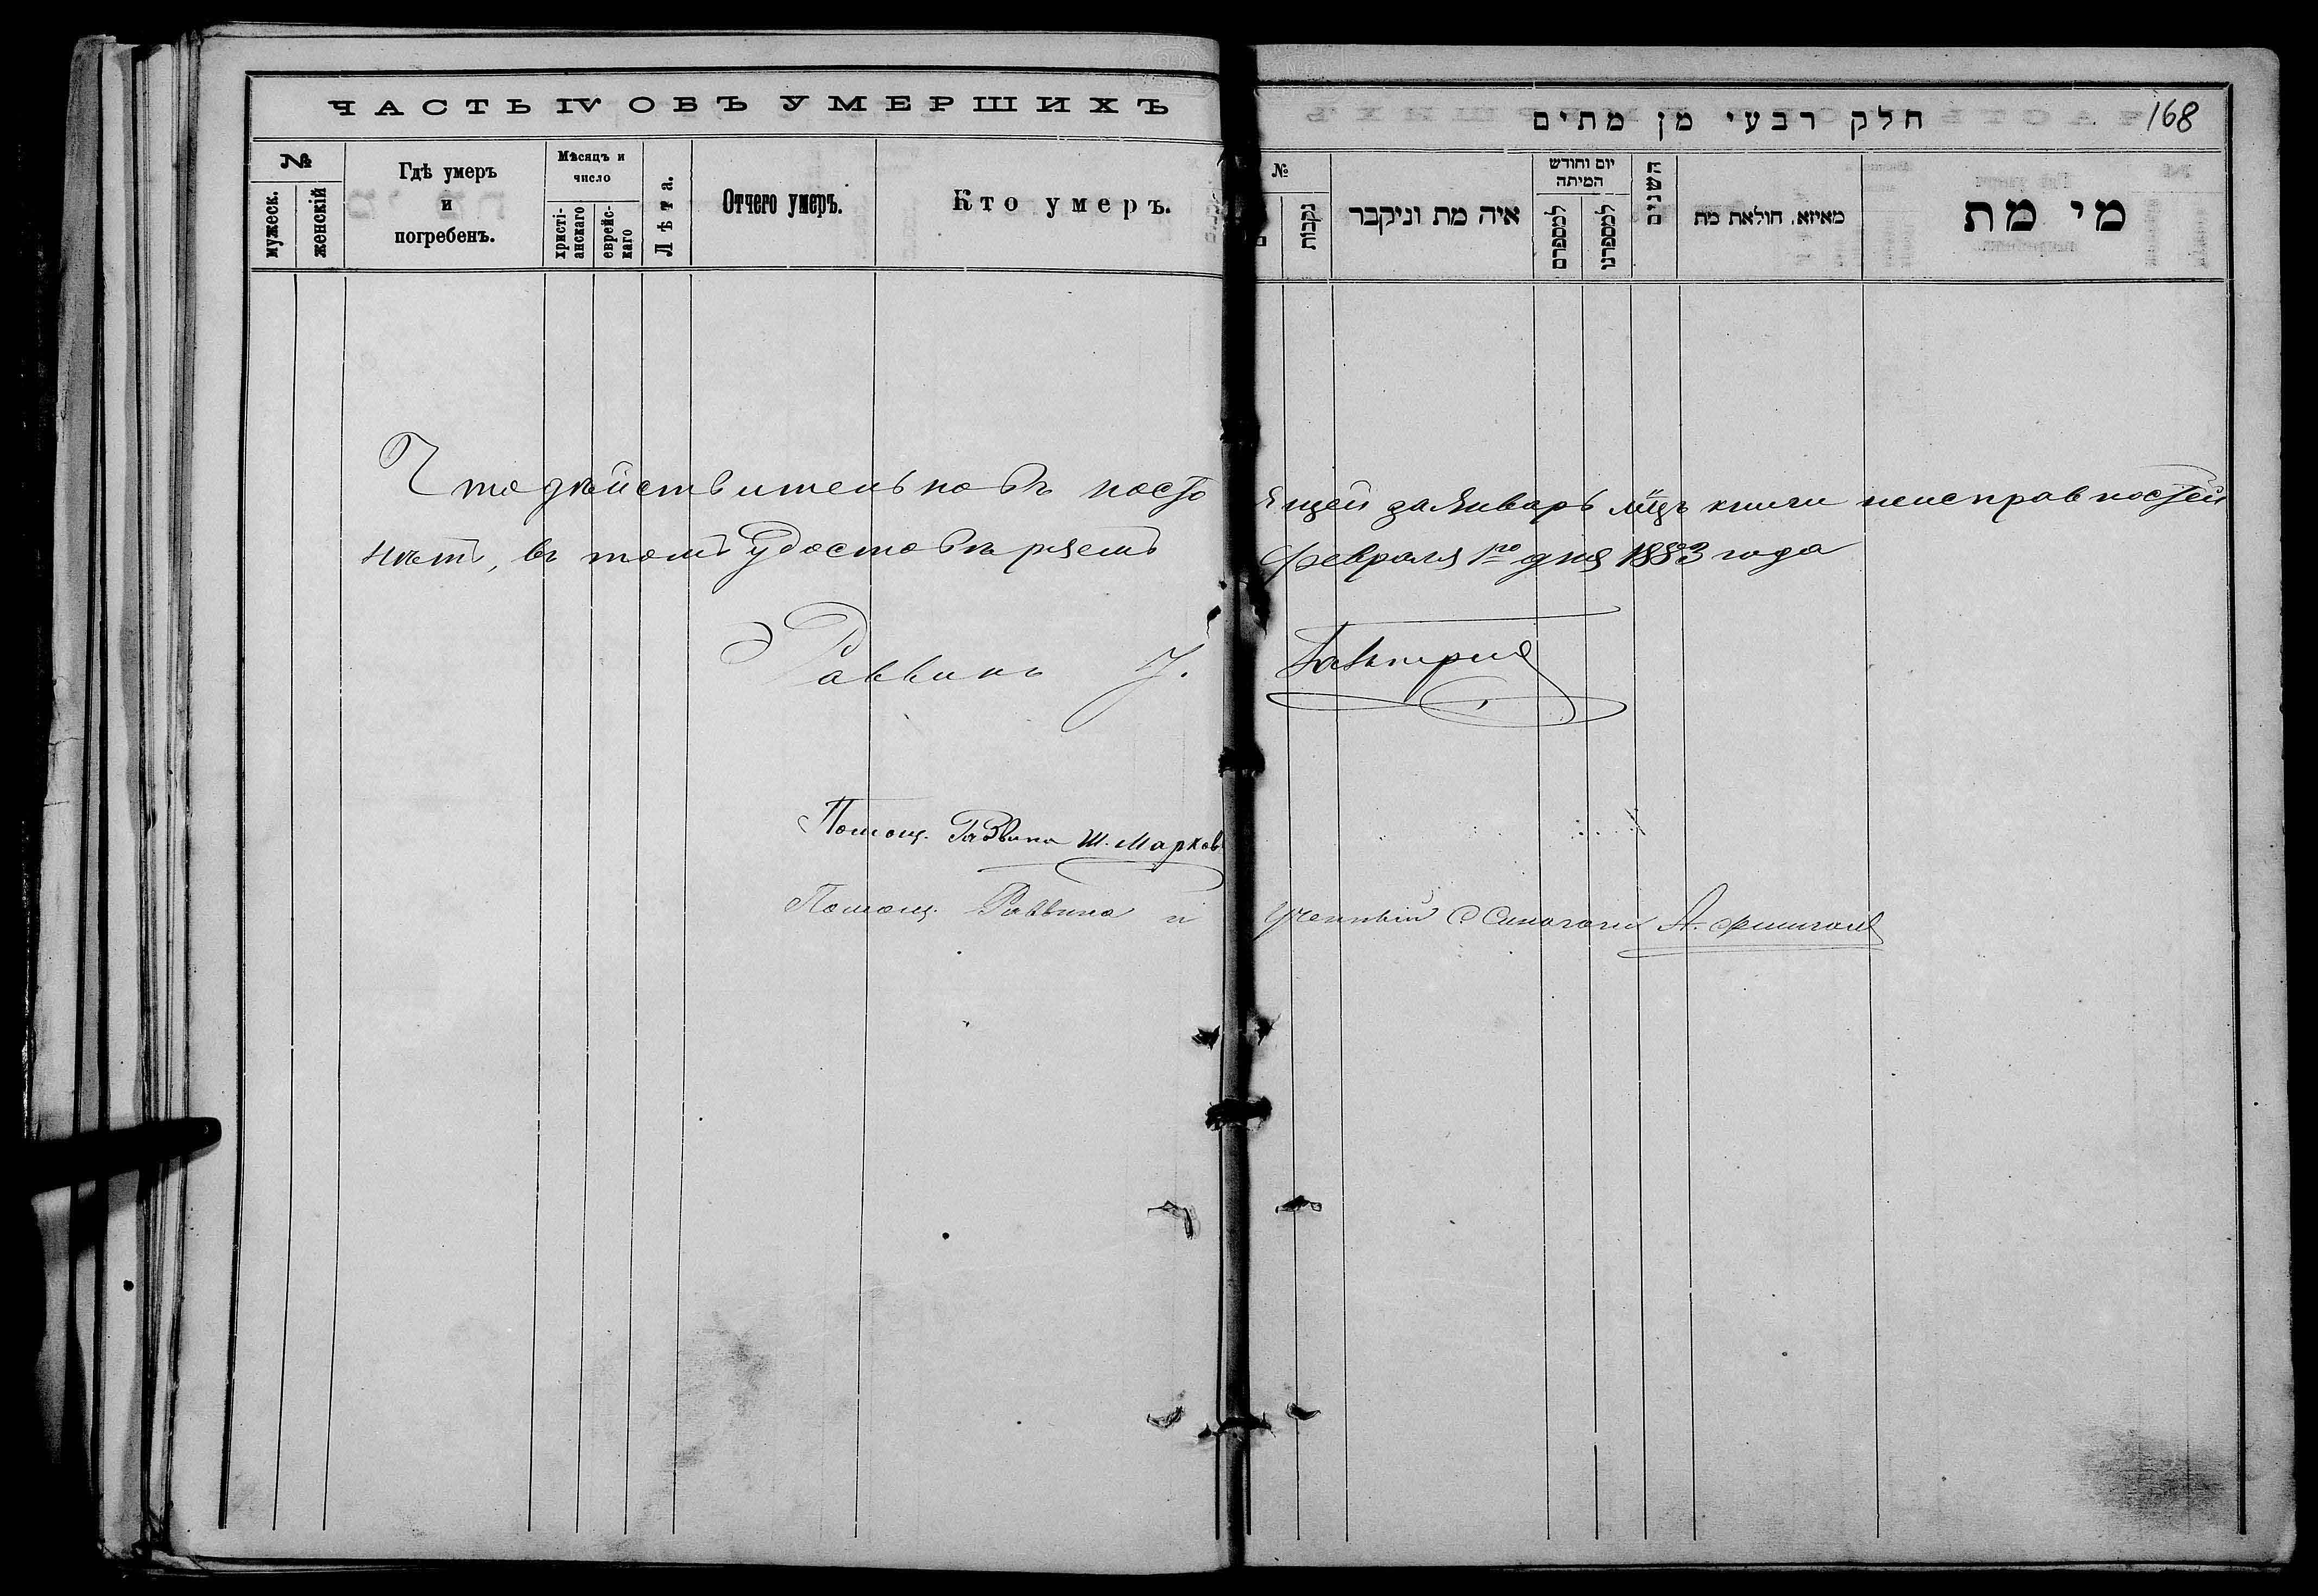 ЧАСТЬ IV ОБЪ УМЕРШИХЪ
№
мужеск.
женскій
Гдѣ умеръ
и
погребенъ.
Мѣсяцъ и
число
христі-
анскаго
еврейс-
каго
Лѣта.
Отчего умеръ.
Кто умеръ.
168
חלק רבעי מן מתים
№
נקבות
איה מת וניקבר
יום וחודש
המיתה
למספרם
למספרנו
השנים
מאיזא חולאת מת
מי מת
Что дѣйствительно въ настоящей за Январь мцъ книги неисправностей
нѣтъ, въ томъ удостовѣряемъ Февраля 1го дня 1883 года
Раввинъ
Помощ. Раввина Ш. Марков
Помощ. Раввина и Ученный Синагоги А.